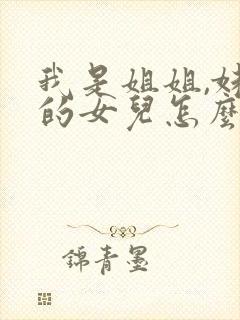 我是姐姐,妹
的女兒怎麼
錦青墨